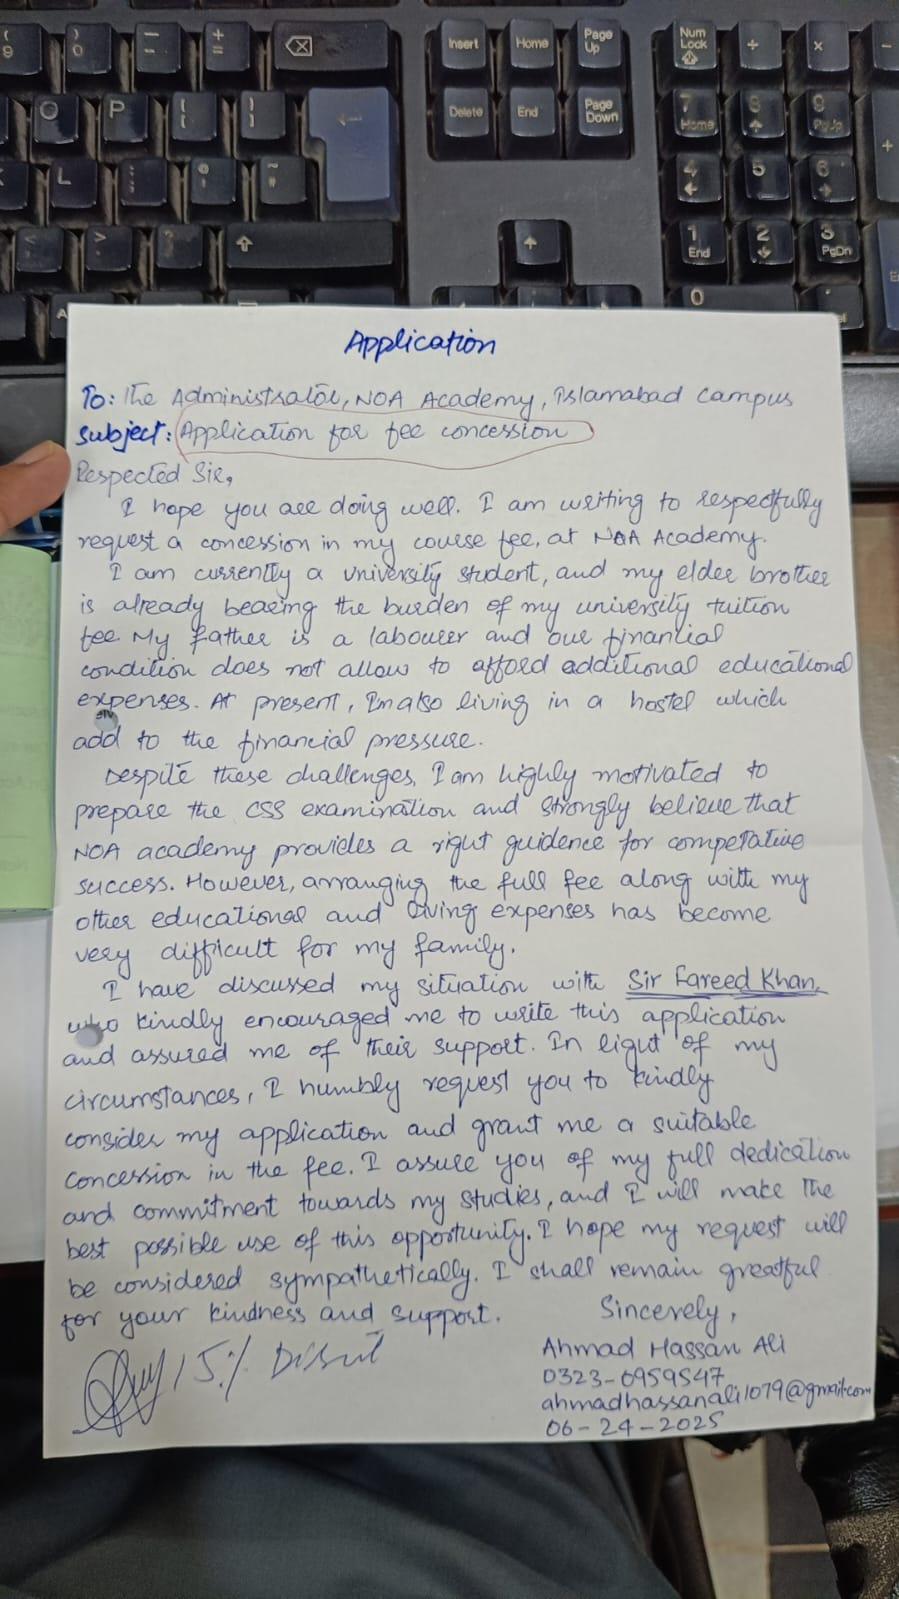 ( 9
) 0
— -
+ =
Insert
Home
Page Up
Num Lock
÷
x
-
O
P
{ [
} ]
Delete
End
Page Down
7 Home
8
9 PgUp
+
L
: ;
@ '
~ #
4
5
6
<
>
?
1 End
2
3 PgDn
0
Application
To: The Administrator, NOA Academy, Islamabad Campus
Subject: Application for fee concession
Respected Sir,
I hope you are doing well. I am writing to respectfully
request a concession in my course fee, at NOA Academy.
I am currently a university student, and my elder brother
is already bearing the burden of my university tuition
fee. My father is a labourer and our financial
condition does not allow to afford additional educational
expenses. At present, I'm also living in a hostel which
add to the financial pressure.
Despite these challenges, I am highly motivated to
prepare the CSS examination and strongly believe that
NOA academy provides a right guidence for competative
success. However, arranging the full fee along with my
other educational and living expenses has become
very difficult for my family.
I have discussed my situation with Sir Fareed Khan,
who kindly encouraged me to write this application
and assured me of their support. In light of my
circumstances, I humbly request you to kindly
consider my application and grant me a suitable
concession in the fee. I assure you of my full dedication
and commitment towards my studies, and I will make the
best possible use of this opportunity. I hope my request will
be considered sympathetically. I shall remain greatful
for your kindness and support.
Sincerely,
Ahmad Hassan Ali
0323-6959547
ahmadhassanali1079@gmail.com
06-24-2025
15%